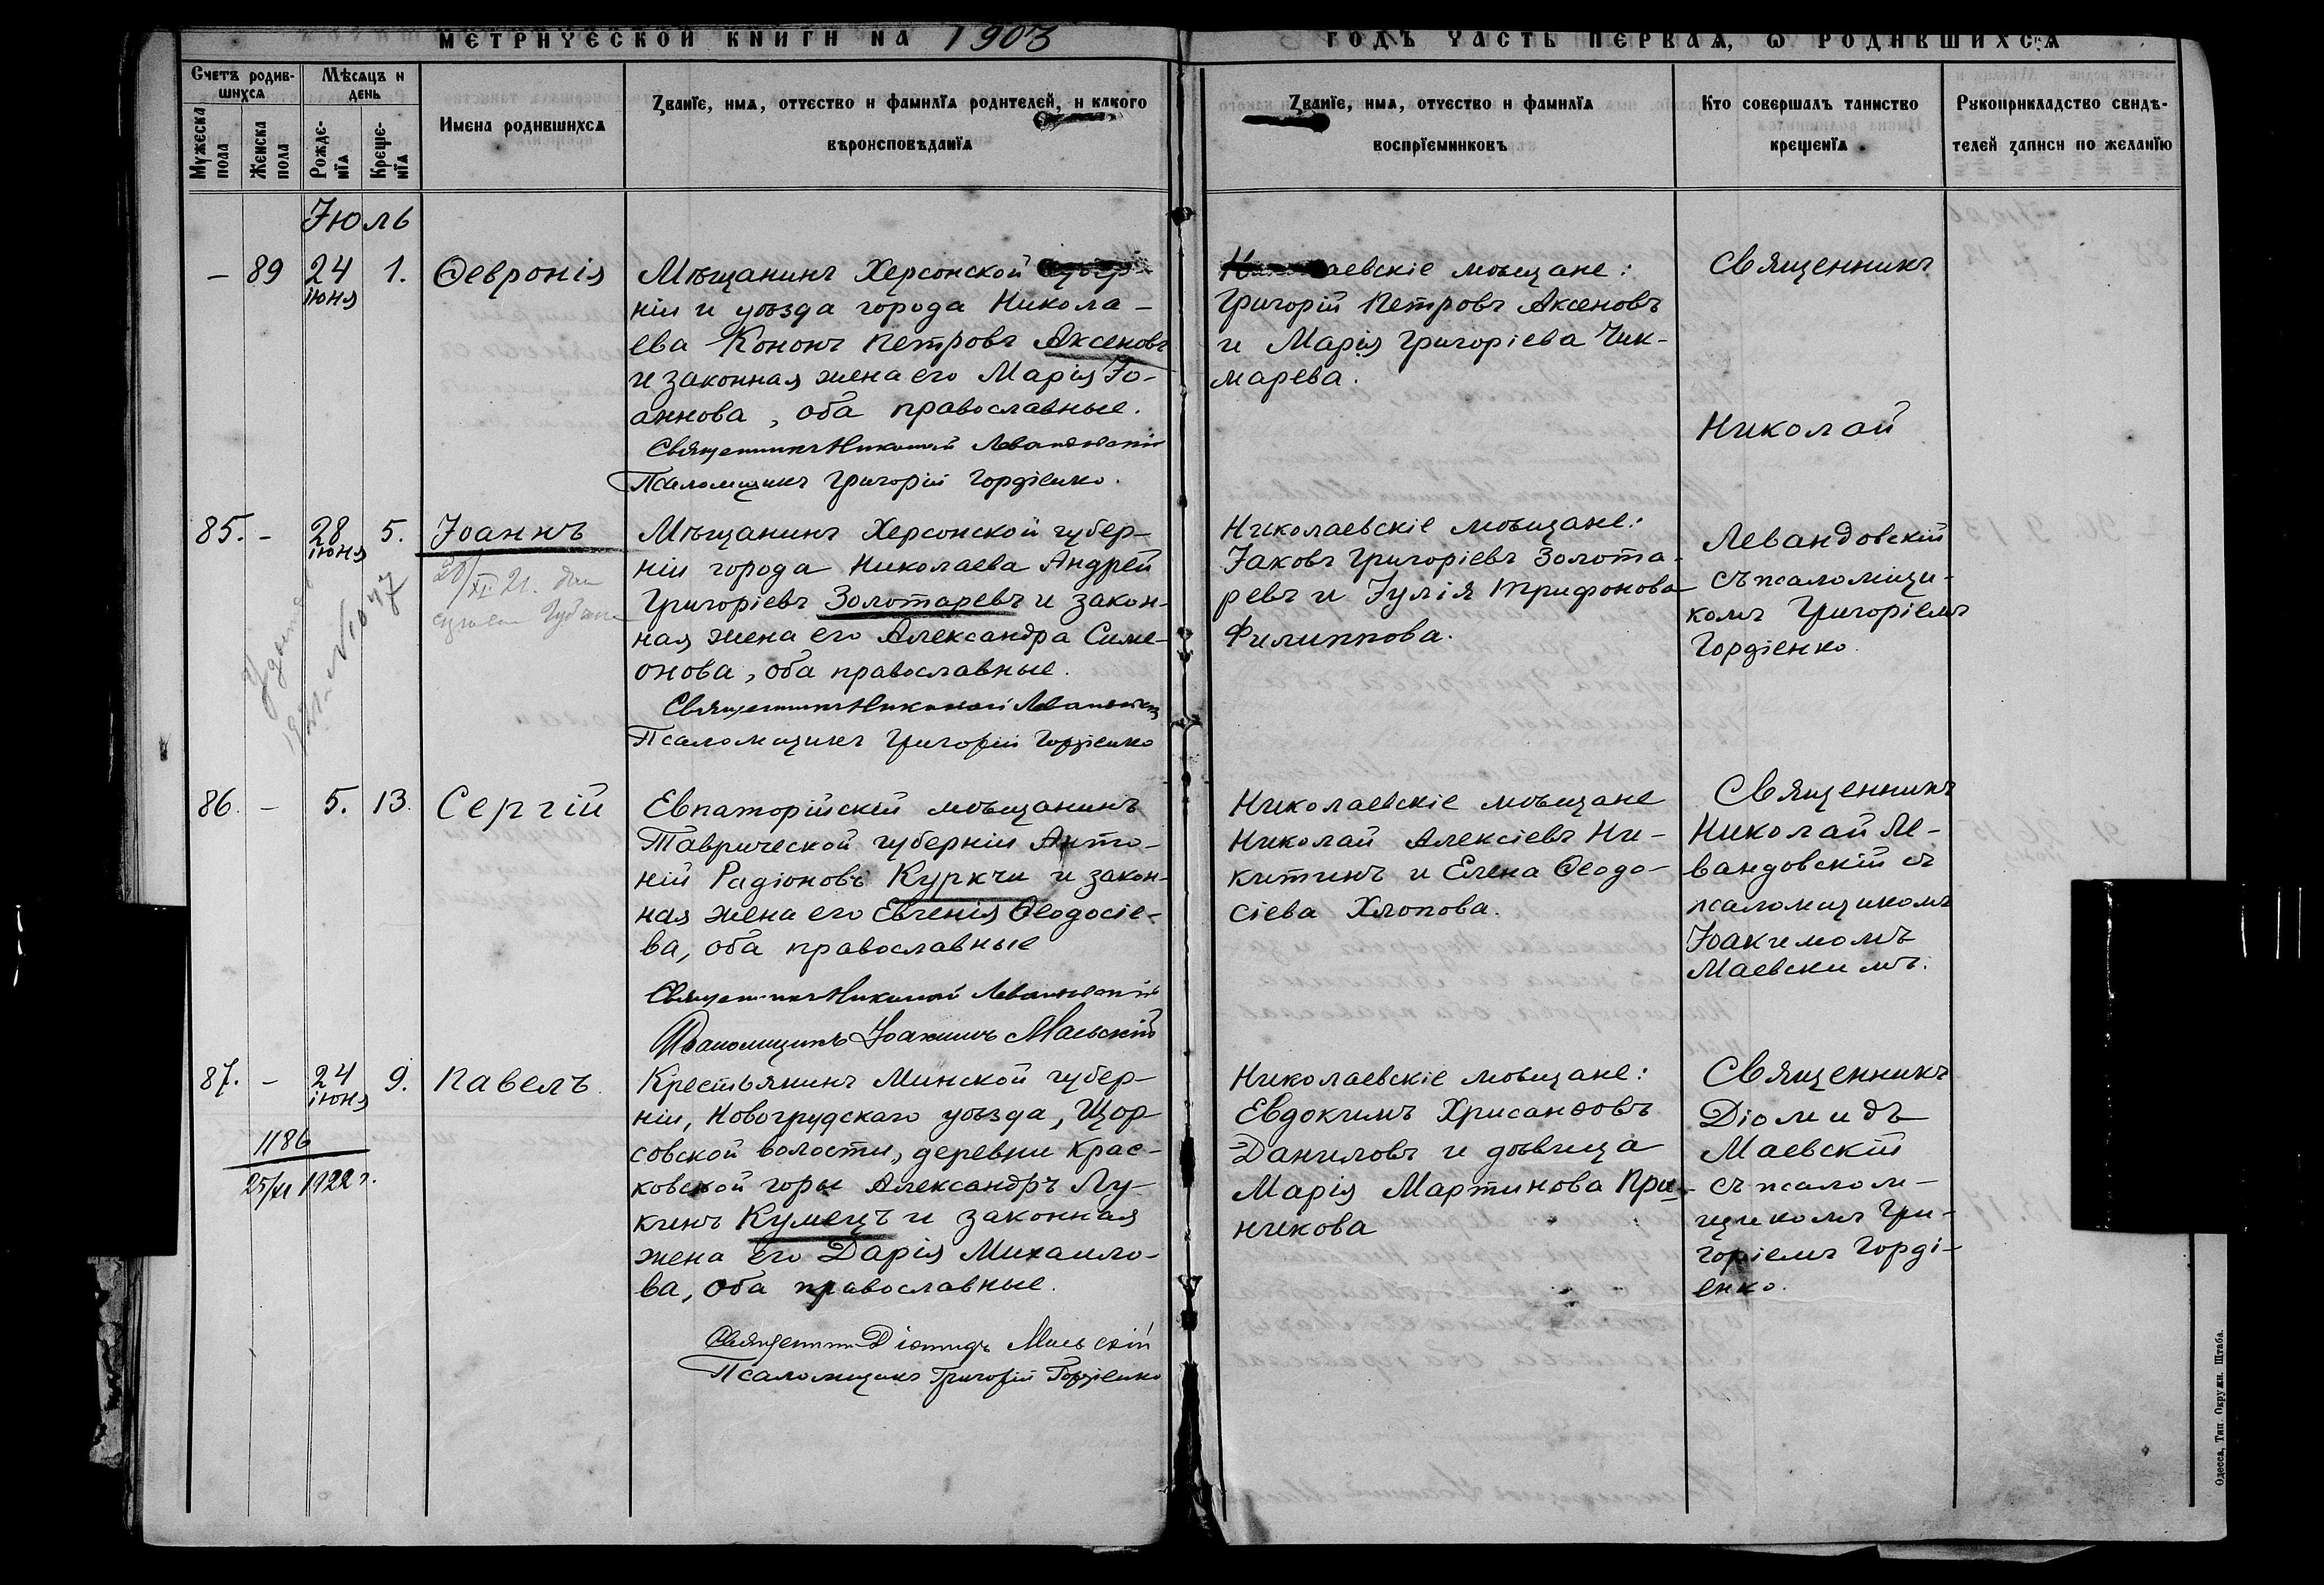 МЕТРИЧЕСКОЙ КНИГИ НА 1903
ГОДЪ ЧАСТЬ ПЕРВАЯ, Ѡ РОДИВШИХСЯ
Счетъ родив-
шихся
Мѣсяцъ и
день
Мужеска
пола
Женска
пола
Рожде-
нїя
Креще-
нїя
Имена родившихся
Званїе, имя, отчество и фамилїя родителей, и какого
вѣроисповѣданїя
Званїе, имя, отчество и фамилїя
воспрїемниковъ
Кто совершалъ таинство
крещенїя
Рукоприкладство свидѣ-
телей записи по желанїю
Іюль
– 89 24 іюня 1. Ѳевронія
Мѣщанинъ Херсонской губер-
ніи и уѣзда города Никола-
ева Кононъ Петровъ Аксеновъ
и законная жена его Марія Іо-
аннова, оба православные.
Священникъ Николай Левандовскій
Псаломщикъ Григорій Гордіенко.
Николаевскіе мѣщане:
Григорій Петровъ Аксеновъ
и Марія Григоріева Чик-
марева.
Священникъ
Николай
Левандовскій
съ псаломщи-
комъ Григоріемъ
Гордіенко.
85. – 28 іюня 5. Іоаннъ
20/XI 21.
№ 1047
Мѣщанинъ Херсонской губер-
ніи города Николаева Андрей
Григоріевъ Золотаревъ и закон-
ная жена его Александра Симе-
онова, оба православные.
Священникъ Николай Левандовскій
Псаломщикъ Григорій Гордіенко
Николаевскіе мѣщане:
Іаковъ Григоріевъ Золота-
ревъ и Іулія Трифонова
Филиппова.
86. – 5. 13. Сергій
Евпаторійскій мѣщанинъ
Таврической губерніи Анто-
ній Радіоновъ Куркчи и закон-
ная жена его Евгенія Ѳеодосіе-
ва, оба православные
Священникъ Николай Левандовскій
Псаломщикъ Іоакимъ Маевскій
Николаевскіе мѣщане
Николай Алексіевъ Ни-
китинъ и Елена Ѳеодо-
сіева Хлопова.
Священникъ
Николай Ле-
вандовскій съ
псаломщикомъ
Іоакимомъ
Маевскимъ.
87. – 24 іюня 9. Павелъ
1186
25/XI 1922 г.
Крестьянинъ Минской губер-
ніи, Новогрудскаго уѣзда, Щор-
совской волости, деревни Крас-
ковской горы Александръ Лу-
кинъ Кумецъ и законная
жена его Дарія Михаило-
ва, оба православные.
Священникъ Діомидъ Маевскій
Псаломщикъ Григорій Гордіенко
Николаевскіе мѣщане:
Евдокимъ Хрисанѳовъ
Даниловъ и дѣвица
Марія Мартинова При-
никова
Священникъ
Діомидъ
Маевскій
съ псалом-
щикомъ Гри-
горіемъ Горді-
енко.
Одесса, Тип. Окружн. Штаба.